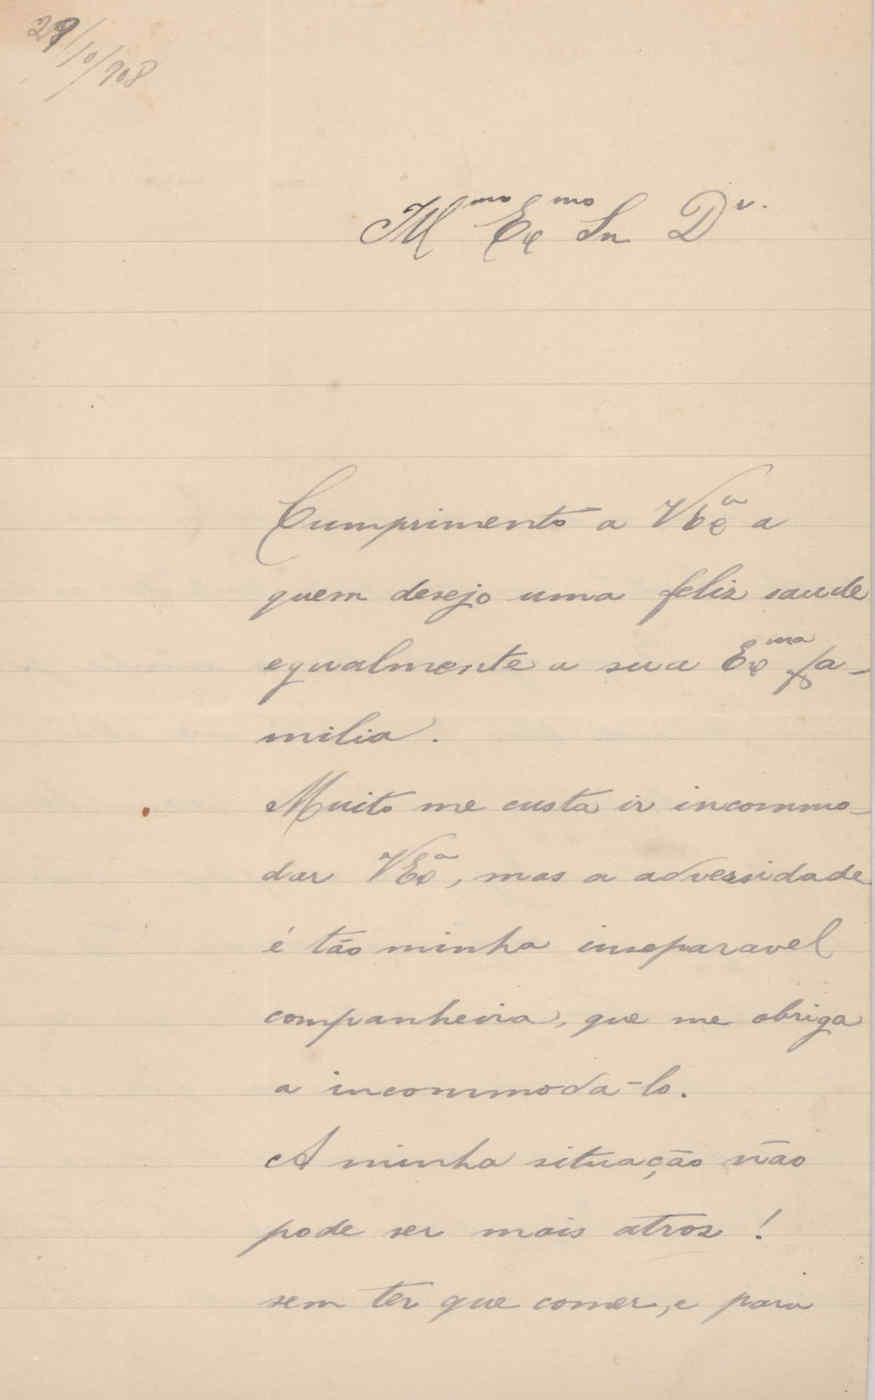 29/10/908
Illmo Exmo Sr Dr.
Cumprimento a VExa a
quem desejo uma feliz saude
egualmente a sua Exma fa-
milia.
Muito me custa ir incommo-
dar VExa, mas a adversidade
é tão minha inseparavel
companheira, que me obriga
a incommoda-lo.
A minha situação não
pode ser mais atroz!
sem ter que comer, e para